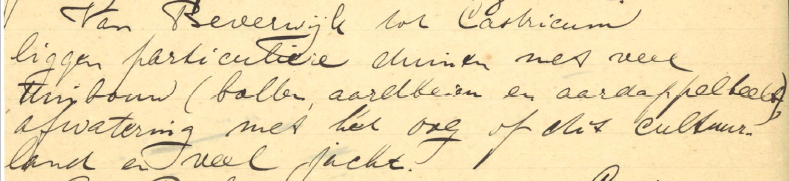 Van Beverwijk tot Castricum
liggen particuliere duinen met veel
tuinbouw (bollen, aardbeien en aardappelteelt),
afwatering met het oog op dit cultuur-
land en veel jacht.